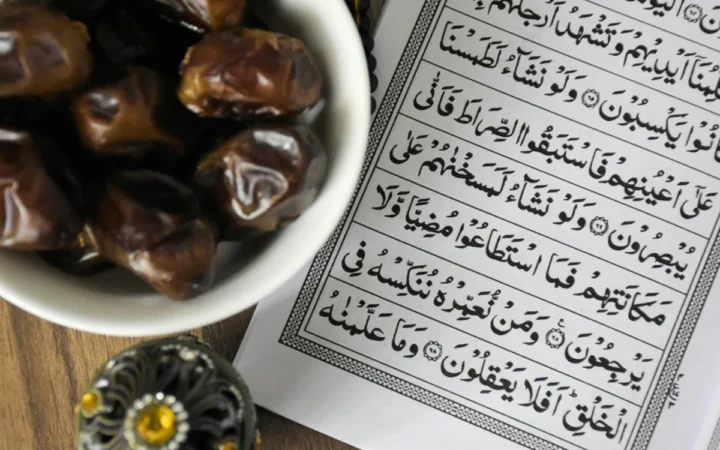 اَلْيَوْمَ
اَيْدِيْهِمْ وَتَشْهَدُ اَرْجُلُهُمْ
يَكْسِبُوْنَ ۝۶۵ وَلَوْ نَشَآءُ لَطَمَسْنَا
عَلٰۤى اَعْيُنِهِمْ فَاسْتَبَقُوا الصِّرَاطَ فَاَنّٰى
يُبْصِرُوْنَ ۝۶۶ وَلَوْ نَشَآءُ لَمَسَخْنٰهُمْ عَلٰى
مَكَانَتِهِمْ فَمَا اسْتَطَاعُوْا مُضِيًّا وَّلَا
يَرْجِعُوْنَ ۝۶۷ وَمَنْ نُّعَمِّرْهُ نُنَكِّسْهُ فِى
الْخَلْقِ ؕ اَفَلَا يَعْقِلُوْنَ ۝۶۸ وَمَا عَلَّمْنٰهُ